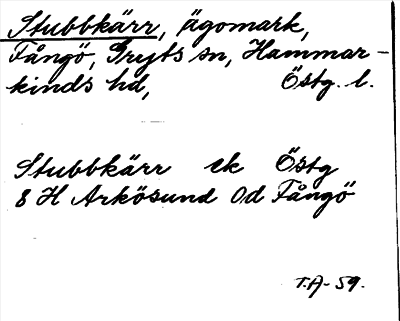 Stubbkärr, ägomark,
Fångö, Gryts sn, Hammar-
kinds hd, Östg. l.
Stubbkärr ek Östg
8 H Arkösund 0d Fångö
T.A- 59.